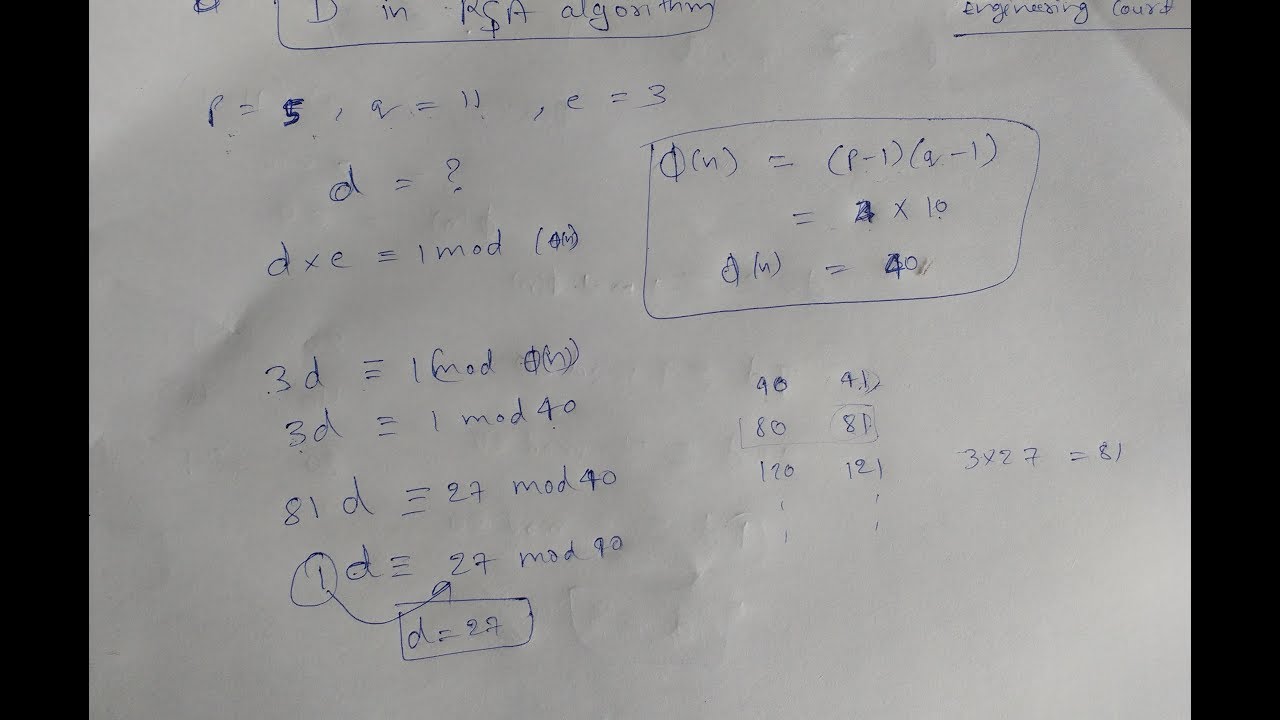 D in RSA algorithm
Engeneering Course
P = 5, q = 11, e = 3
d = ?
d × e ≡ 1 mod (ϕ(n))
ϕ(n) = (P-1)(q-1)
= 4 × 10
ϕ(n) = 40
3d ≡ 1(mod ϕ(n))
3d ≡ 1 mod 40
81 d ≡ 27 mod 40
1 d ≡ 27 mod 40
d = 27
40 41
80 81
120 121
3×27 = 81